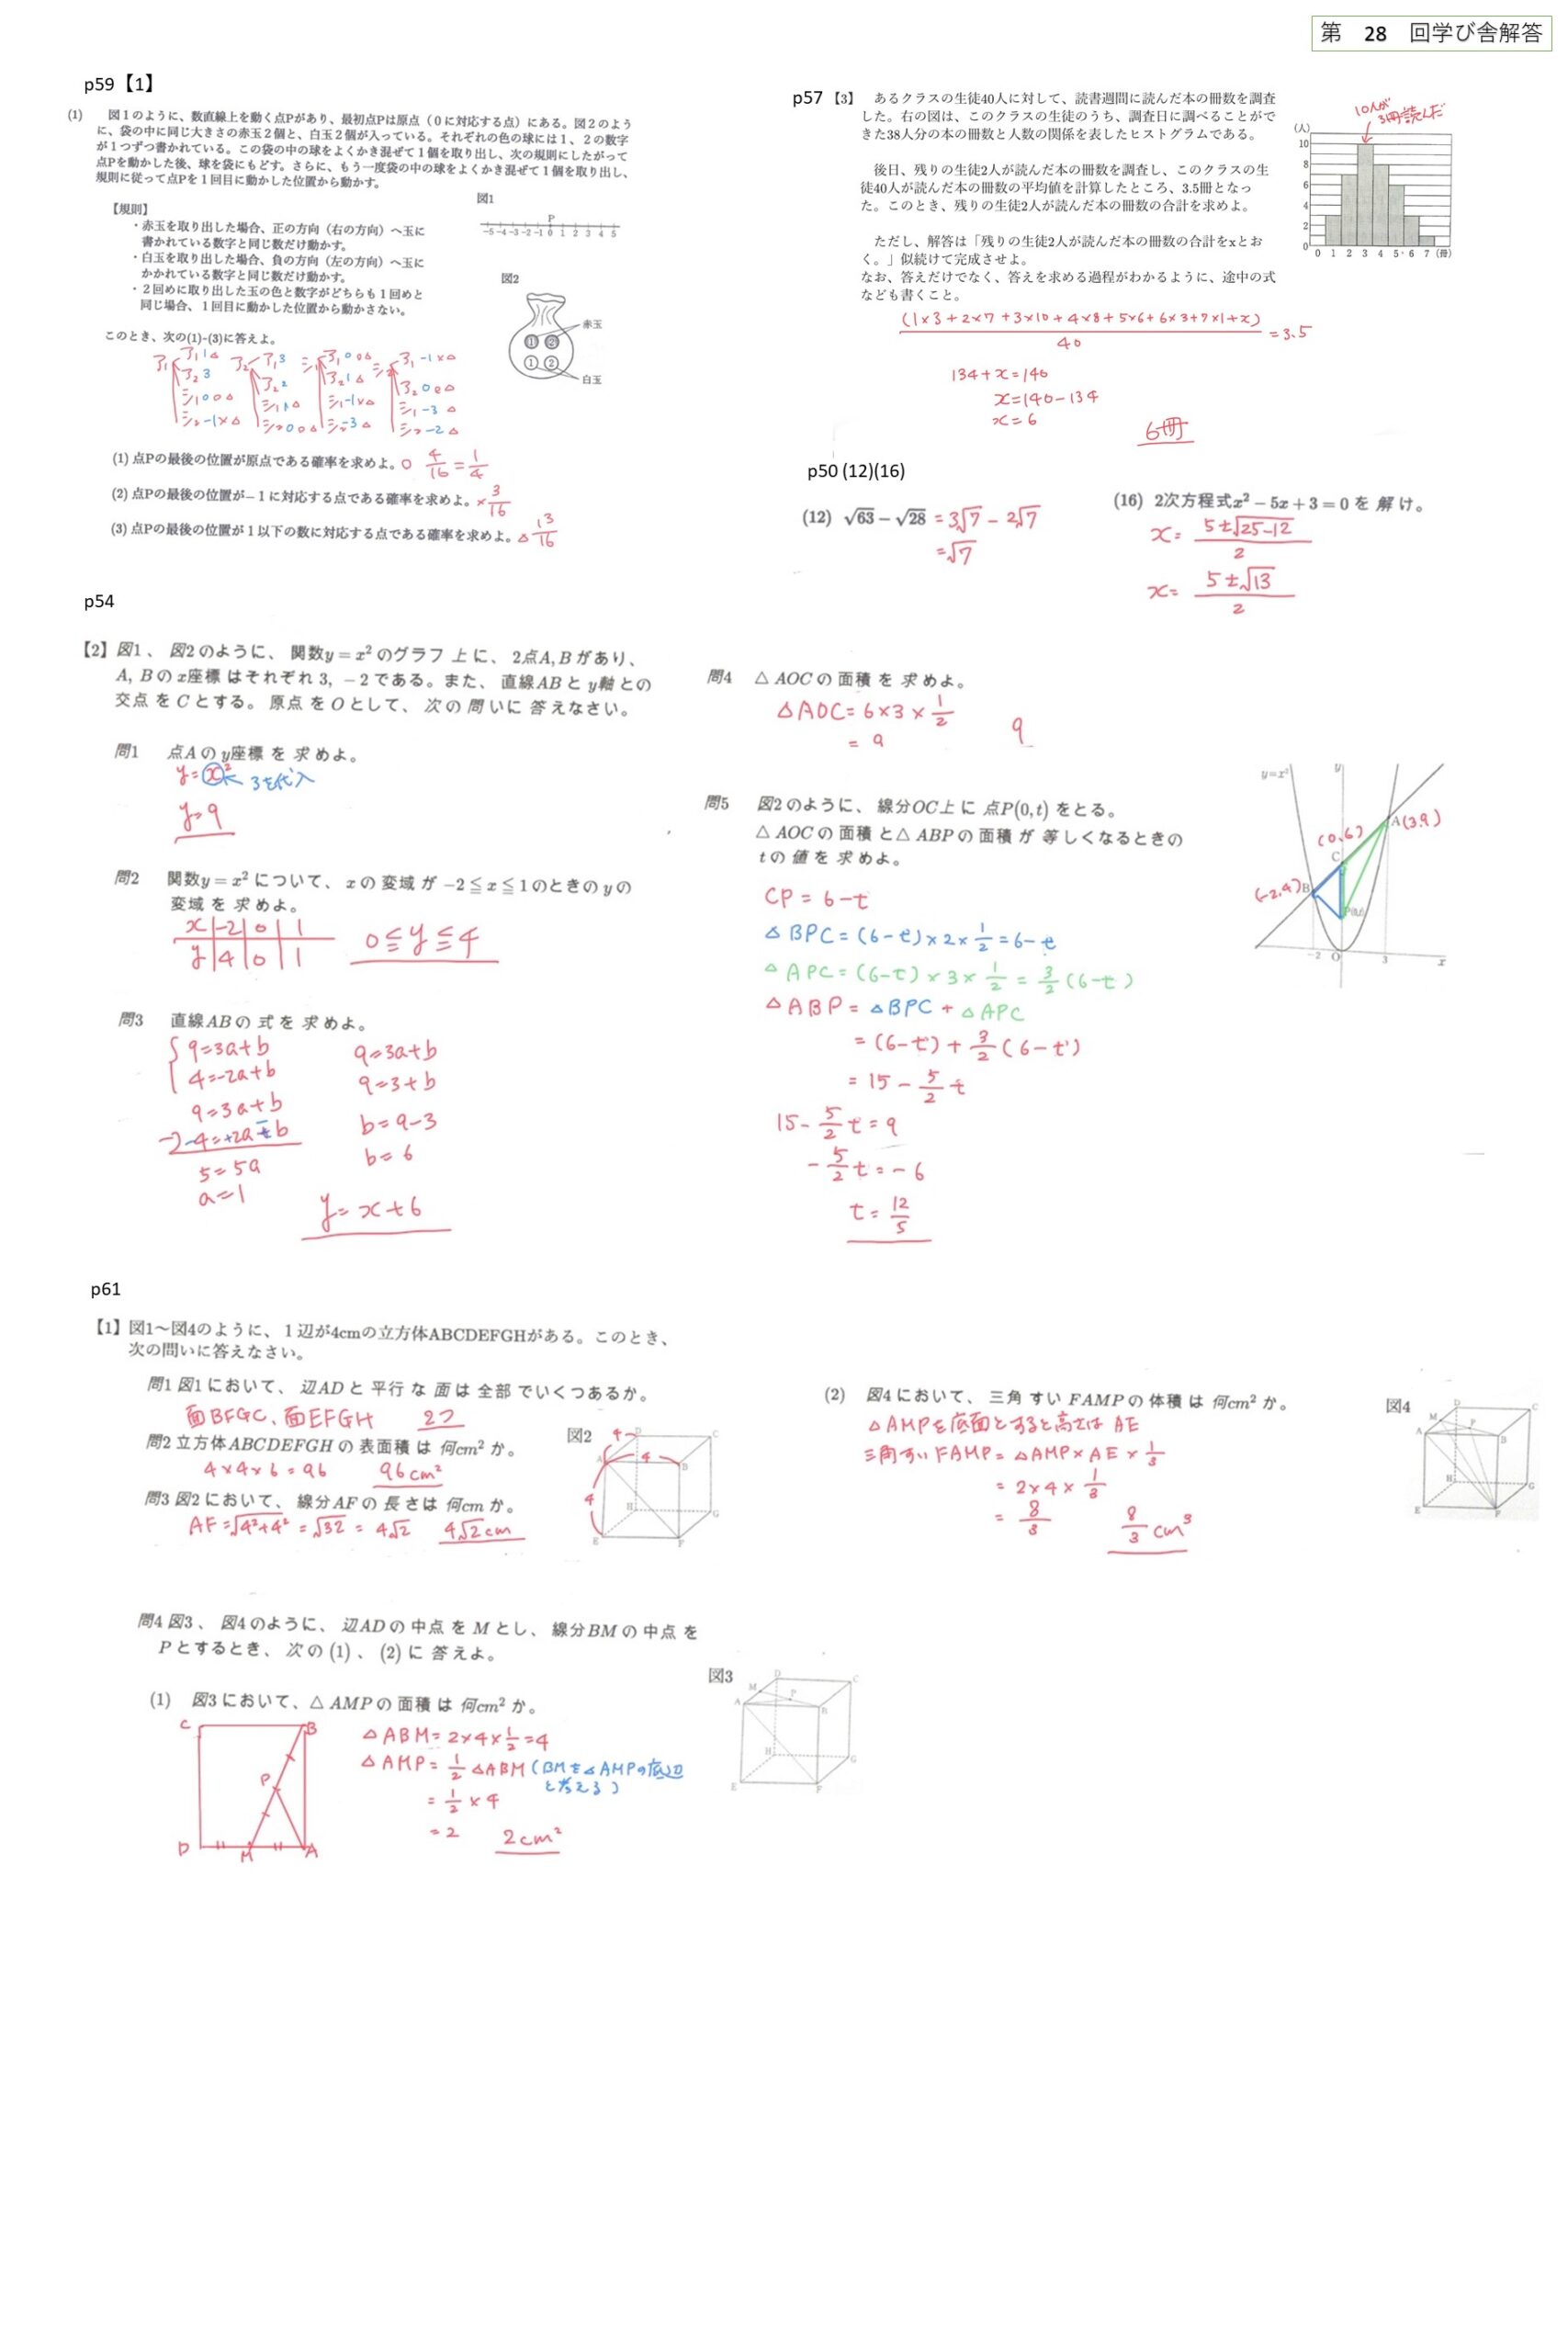 第 28 回学び舎解答
p59【1】
(1) 図１のように、数直線上を動く点Pがあり、最初点Pは原点（０に対応する点）にある。図２のよう
に、袋の中に同じ大きさの赤玉２個と、白玉２個が入っている。それぞれの色の球には１、２の数字
が１つずつ書かれている。この袋の中の球をよくかき混ぜて１個を取り出し、次の規則にしたがって
点Pを動かした後、球を袋にもどす。さらに、もう一度袋の中の球をよくかき混ぜて１個を取り出し、
規則に従って点Pを１回目に動かした位置から動かす。
図1
P
-5 -4 -3 -2 -1 0 1 2 3 4 5
【規則】
・赤玉を取り出した場合、正の方向（右の方向）へ玉に
書かれている数字と同じ数だけ動かす。
・白玉を取り出した場合、負の方向（左の方向）へ玉に
かかれている数字と同じ数だけ動かす。
・２回めに取り出した玉の色と数字がどちらも１回めと
同じ場合、１回目に動かした位置から動かさない。
図2
赤玉
① ②
① ②
白玉
このとき、次の(1)-(3)に答えよ。
(1) 点Pの最後の位置が原点である確率を求めよ。○ 4/16 = 1/4
(2) 点Pの最後の位置が－１に対応する点である確率を求めよ。× 3/16
(3) 点Pの最後の位置が１以下の数に対応する点である確率を求めよ。△ 13/16
p57【3】 あるクラスの生徒40人に対して、読書週間に読んだ本の冊数を調査
した。右の図は、このクラスの生徒のうち、調査日に調べることがで
きた38人分の本の冊数と人数の関係を表したヒストグラムである。
後日、残りの生徒2人が読んだ本の冊数を調査し、このクラスの生
徒40人が読んだ本の冊数の平均値を計算したところ、3.5冊となっ
た。このとき、残りの生徒2人が読んだ本の冊数の合計を求めよ。
ただし、解答は「残りの生徒2人が読んだ本の冊数の合計をxとお
く。」似続けて完成させよ。
なお、答えだけでなく、答えを求める過程がわかるように、途中の式
なども書くこと。
10人が
3冊読んだ
(人)
10
8
6
4
2
0
0 1 2 3 4 5 6 7 (冊)
(1×3+2×7+3×10+4×8+5×6+6×3+7×1+x)/40 = 3.5
134+x=140
x=140-134
x=6
6冊
p50 (12)(16)
(12) √63 − √28 = 3√7 − 2√7
=√7
(16) 2次方程式x² − 5x + 3 = 0 を 解け。
x= (5±√25-12)/2
x= (5±√13)/2
p54
【2】図1、図2のように、関数y = x² のグラフ上に、2点A, Bがあり、
A, Bのx座標はそれぞれ 3, −2 である。また、直線ABとy軸との
交点をCとする。原点をOとして、次の問いに答えなさい。
問1 点Aのy座標を求めよ。
y=x² ← 3を代入
y=9
問2 関数y = x² について、xの変域が −2 ≦ x ≦ 1 のときのyの
変域を求めよ。
x -2 0 1
y 4 0 1
0≦y≦4
問3 直線ABの式を求めよ。
9=3a+b
4=-2a+b
9=3a+b
5=5a
a=1
9=3a+b
9=3+b
b=9-3
b=6
y=x+6
問4 △AOCの面積を求めよ。
△AOC=6×3×1/2
= 9
9
問5 図2のように、線分OC上に点P(0, t)をとる。
△AOCの面積と△ABPの面積が等しくなるときの
tの値を求めよ。
CP = 6-t
△BPC=(6-t)×2×1/2=6-t
△APC=(6-t)×3×1/2=3/2(6-t)
△ABP=△BPC+△APC
=(6-t)+3/2(6-t)
=15-5/2t
15-5/2t=9
-5/2t=-6
t=12/5
y=x²
y
A(3,9)
(0,6)
C
(-2,4)B
P(0,t)
-2 O 3 x
p61
【1】図1～図4のように、１辺が4cmの立方体ABCDEFGHがある。このとき、
次の問いに答えなさい。
問1 図1において、辺ADと平行な面は全部でいくつあるか。
面BFGC、面EFGH 2つ
問2 立方体ABCDEFGHの表面積は何cm²か。
4×4×6=96 96cm²
問3 図2において、線分AFの長さは何cmか。
AF=√4²+4²=√32=4√2 4√2cm
図2
4 D C
A 4 B
4
H G
E F
問4 図3、図4のように、辺ADの中点をMとし、線分BMの中点を
Pとするとき、次の(1)、(2)に答えよ。
(1) 図3において、△AMPの面積は何cm²か。
C B
P
D M A
△ABM=2×4×1/2=4
△AMP=1/2△ABM(BMを△AMPの底辺
と考える)
=1/2×4
=2 2cm²
図3
D C
M P
A B
H G
E F
(2) 図4において、三角すいFAMPの体積は何cm²か。
△AMPを底面とすると高さは AE
三角すいFAMP=△AMP×AE×1/3
=2×4×1/3
=8/3 8/3cm³
図4
D C
M P
A B
H G
E F